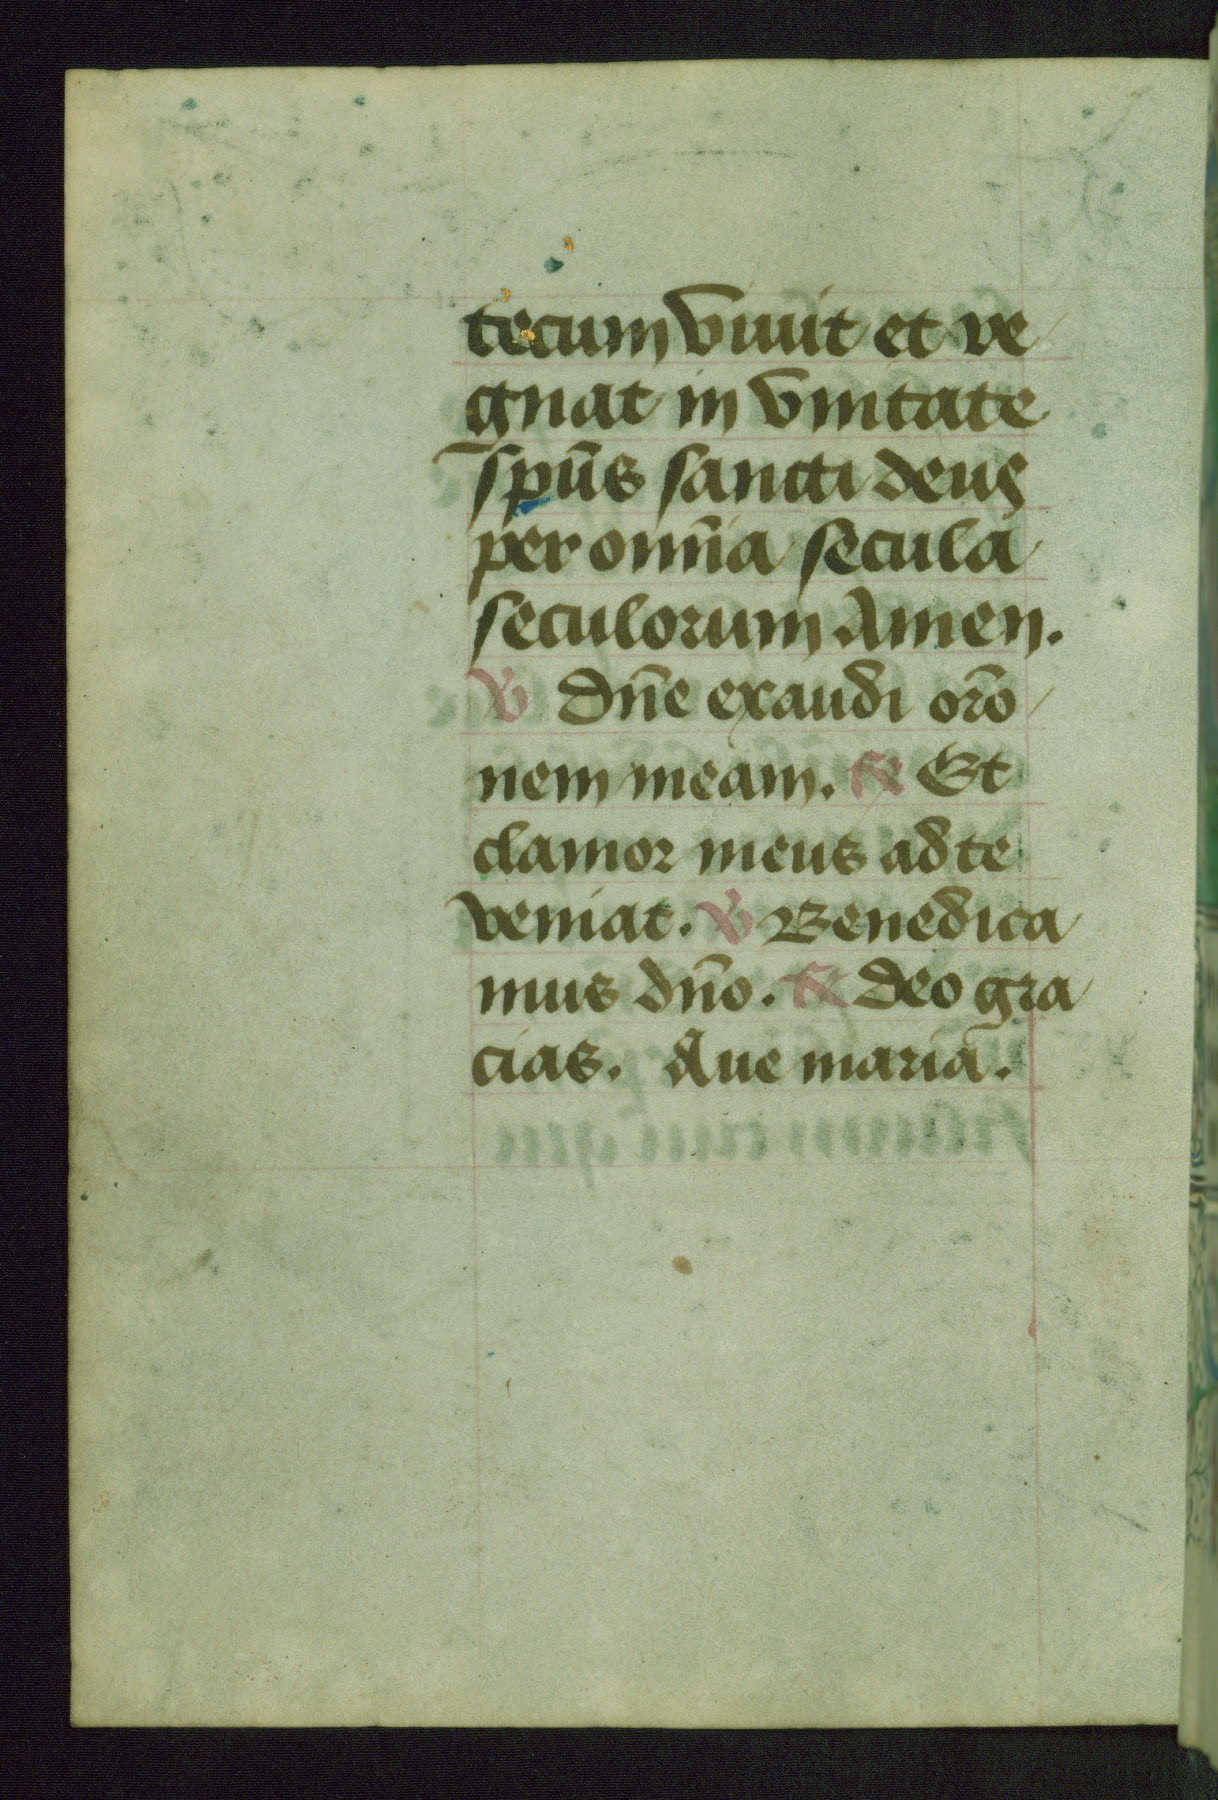 tecum viuit et re
gnat in vnitate
sp̄us sancti deus
per omīa secula
seculorum Amen.
℣ Dn̄e exaudi oro̅
nem meam. ℟ Et
clamor meus ad te
veniat. ℣ Benedica
mus dn̄o. ℟ Deo gra
cias. Aue maria.